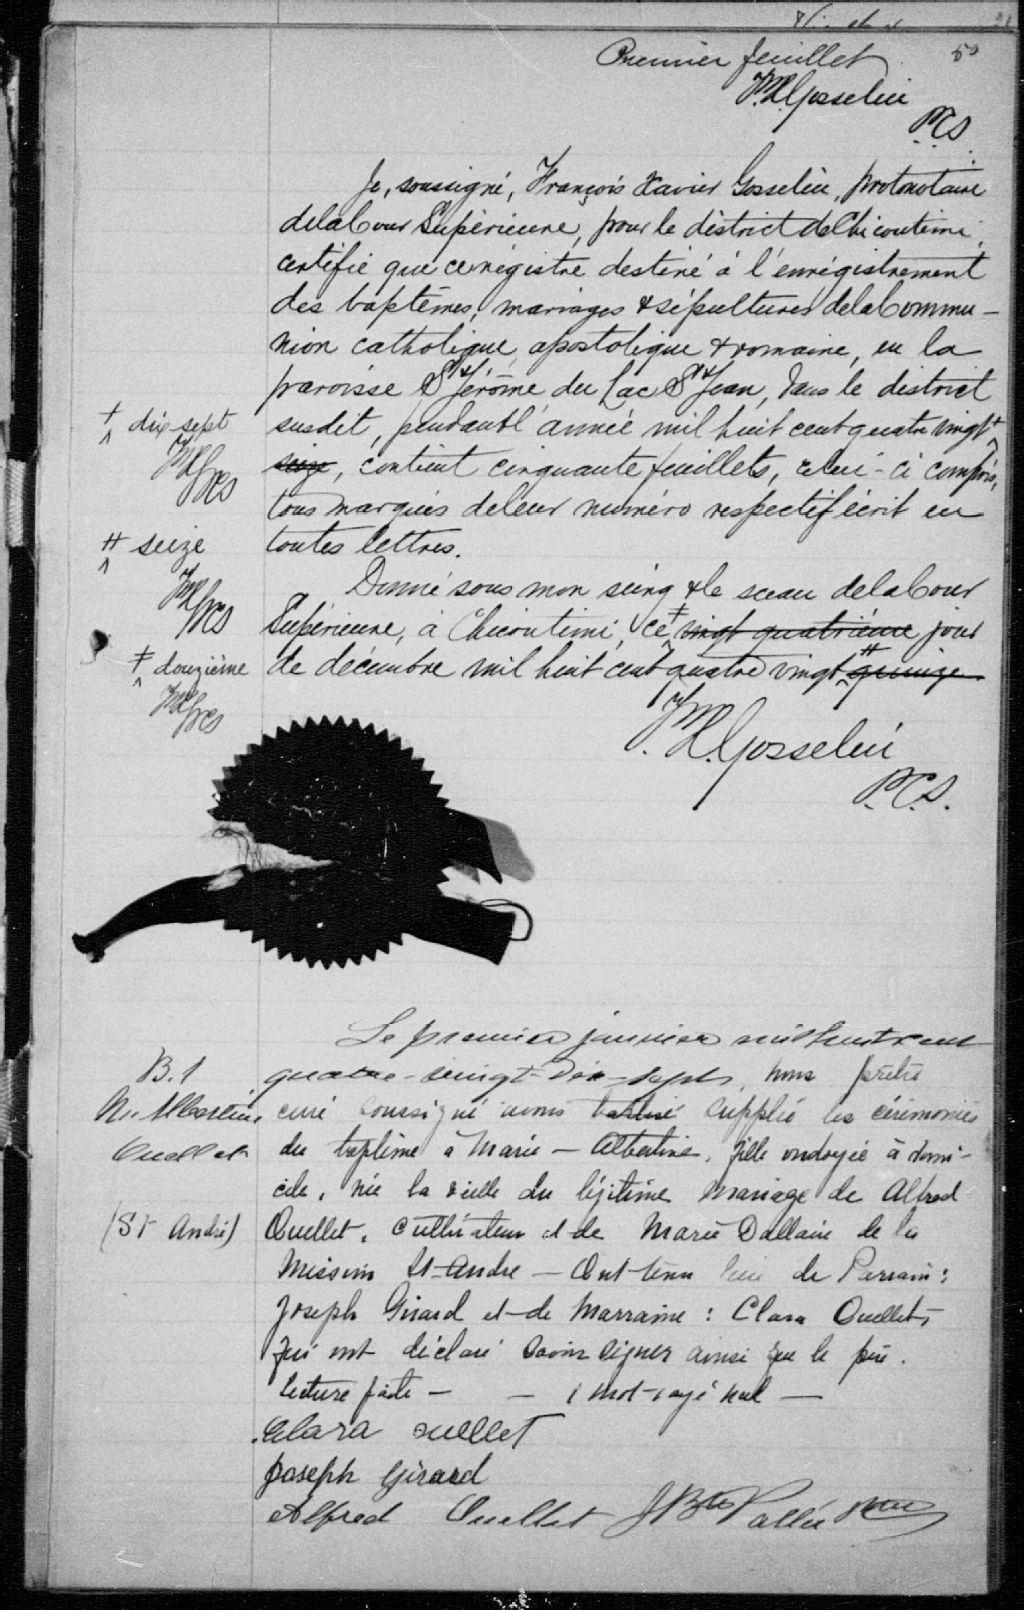 Premier feuillet 50
F.X. Gosselin
P.C.S.
Je, soussigné, François Xavier Gosselin, protonotaire
de la Cour Supérieure, pour le district de Chicoutimi,
certifie que ce régistre destiné à l'enrégistrement
des baptêmes, mariages & sépultures de la Commu-
nion catholique, apostolique & romaine, en la
paroisse St Jérôme du Lac St Jean, dans le district
+ dix sept
susdit, pendant l'année mil huit cent quatre vingt +
seize, contient cinquante feuillets, celui-ci compris,
tous marqués de leur numéro respectif écrit en
# seize
toutes lettres.
Donné sous mon seing & le sceau de la Cour
Supérieure, à Chicoutimi, ce ‡ vingt quatrième jour
‡ douzième
de décembre mil huit cent quatre vingt # quinze.
F.X. Gosselin
P.C.S.
Le premier janvier mil huit cent
B.1
quatre-vingt-dix-sept, nous prêtre
M. Albertine
curé soussigné avons baptisé supplié les cérémonies
Ouellet
du baptême à Marie - Albertine, fille ondoyée à domi-
cile, née la veille du légitime mariage de Alfred
(St André)
Ouellet, cultivateur et de Marie Dallaire de la
Mission St-André - Ont tenu lieu de Parrain:
Joseph Girard et de Marraine: Clara Ouellet,
qui ont déclaré savoir signer ainsi que le père.
Lecture faite - - 1 mot rayé nul -
Clara Ouellet
Joseph Girard
Alfred Ouellet J Bte Vallée Ptre